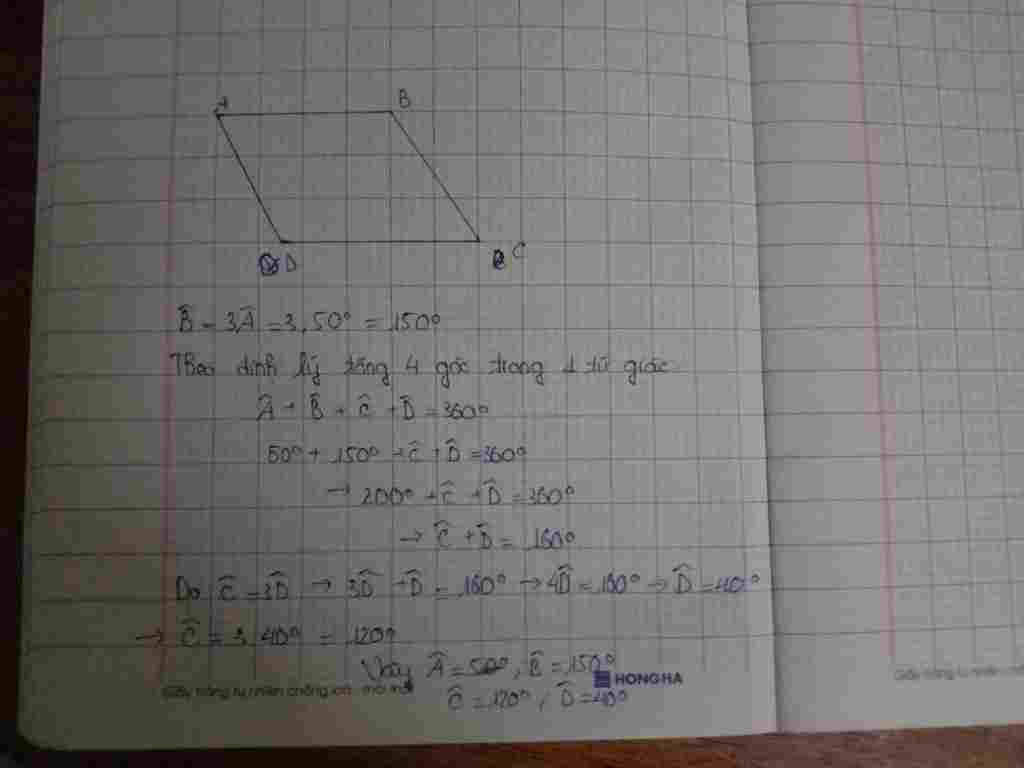 A B
D C
B̂ = 3Â = 3.50° = 150°
Theo định lý tổng 4 góc trong 1 tứ giác
Â + B̂ + Ĉ + D̂ = 360°
50° + 150° + Ĉ + D̂ = 360°
→ 200° + Ĉ + D̂ = 360°
→ Ĉ + D̂ = 160°
Do Ĉ = 3D̂ → 3D̂ + D̂ = 160° → 4D̂ = 160° → D̂ = 40°
→ Ĉ = 3.40° = 120°
Vậy Â = 50°, B̂ = 150°
Ĉ = 120°, D̂ = 40°
Giấy trắng tự nhiên chống lóa, mỏi mắt HONG HA
Giấy trắng tự nhiên